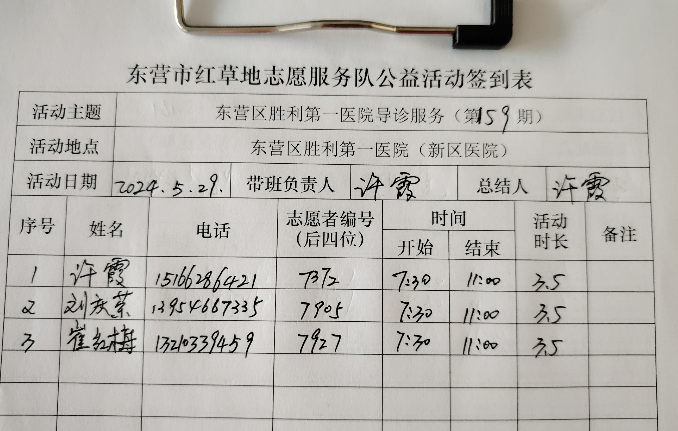 东营市红草地志愿服务队公益活动签到表
活动主题 东营区胜利第一医院导诊服务（第159期）
活动地点 东营区胜利第一医院（新区医院）
活动日期 2024.5.29. 带班负责人 许霞 总结人 许霞
序号 姓名 电话 志愿者编号（后四位） 时间 开始 结束 活动时长 备注
1 许霞 15166286421 7372 7:30 11:00 3.5
2 刘庆荣 13954667335 7905 7:30 11:00 3.5
3 崔红梅 13210339459 7927 7:30 11:00 3.5